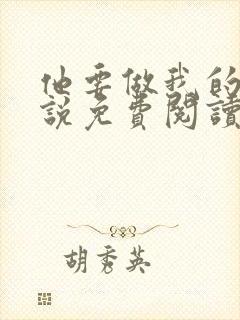 他要做我的
說免費閱讀
胡秀英